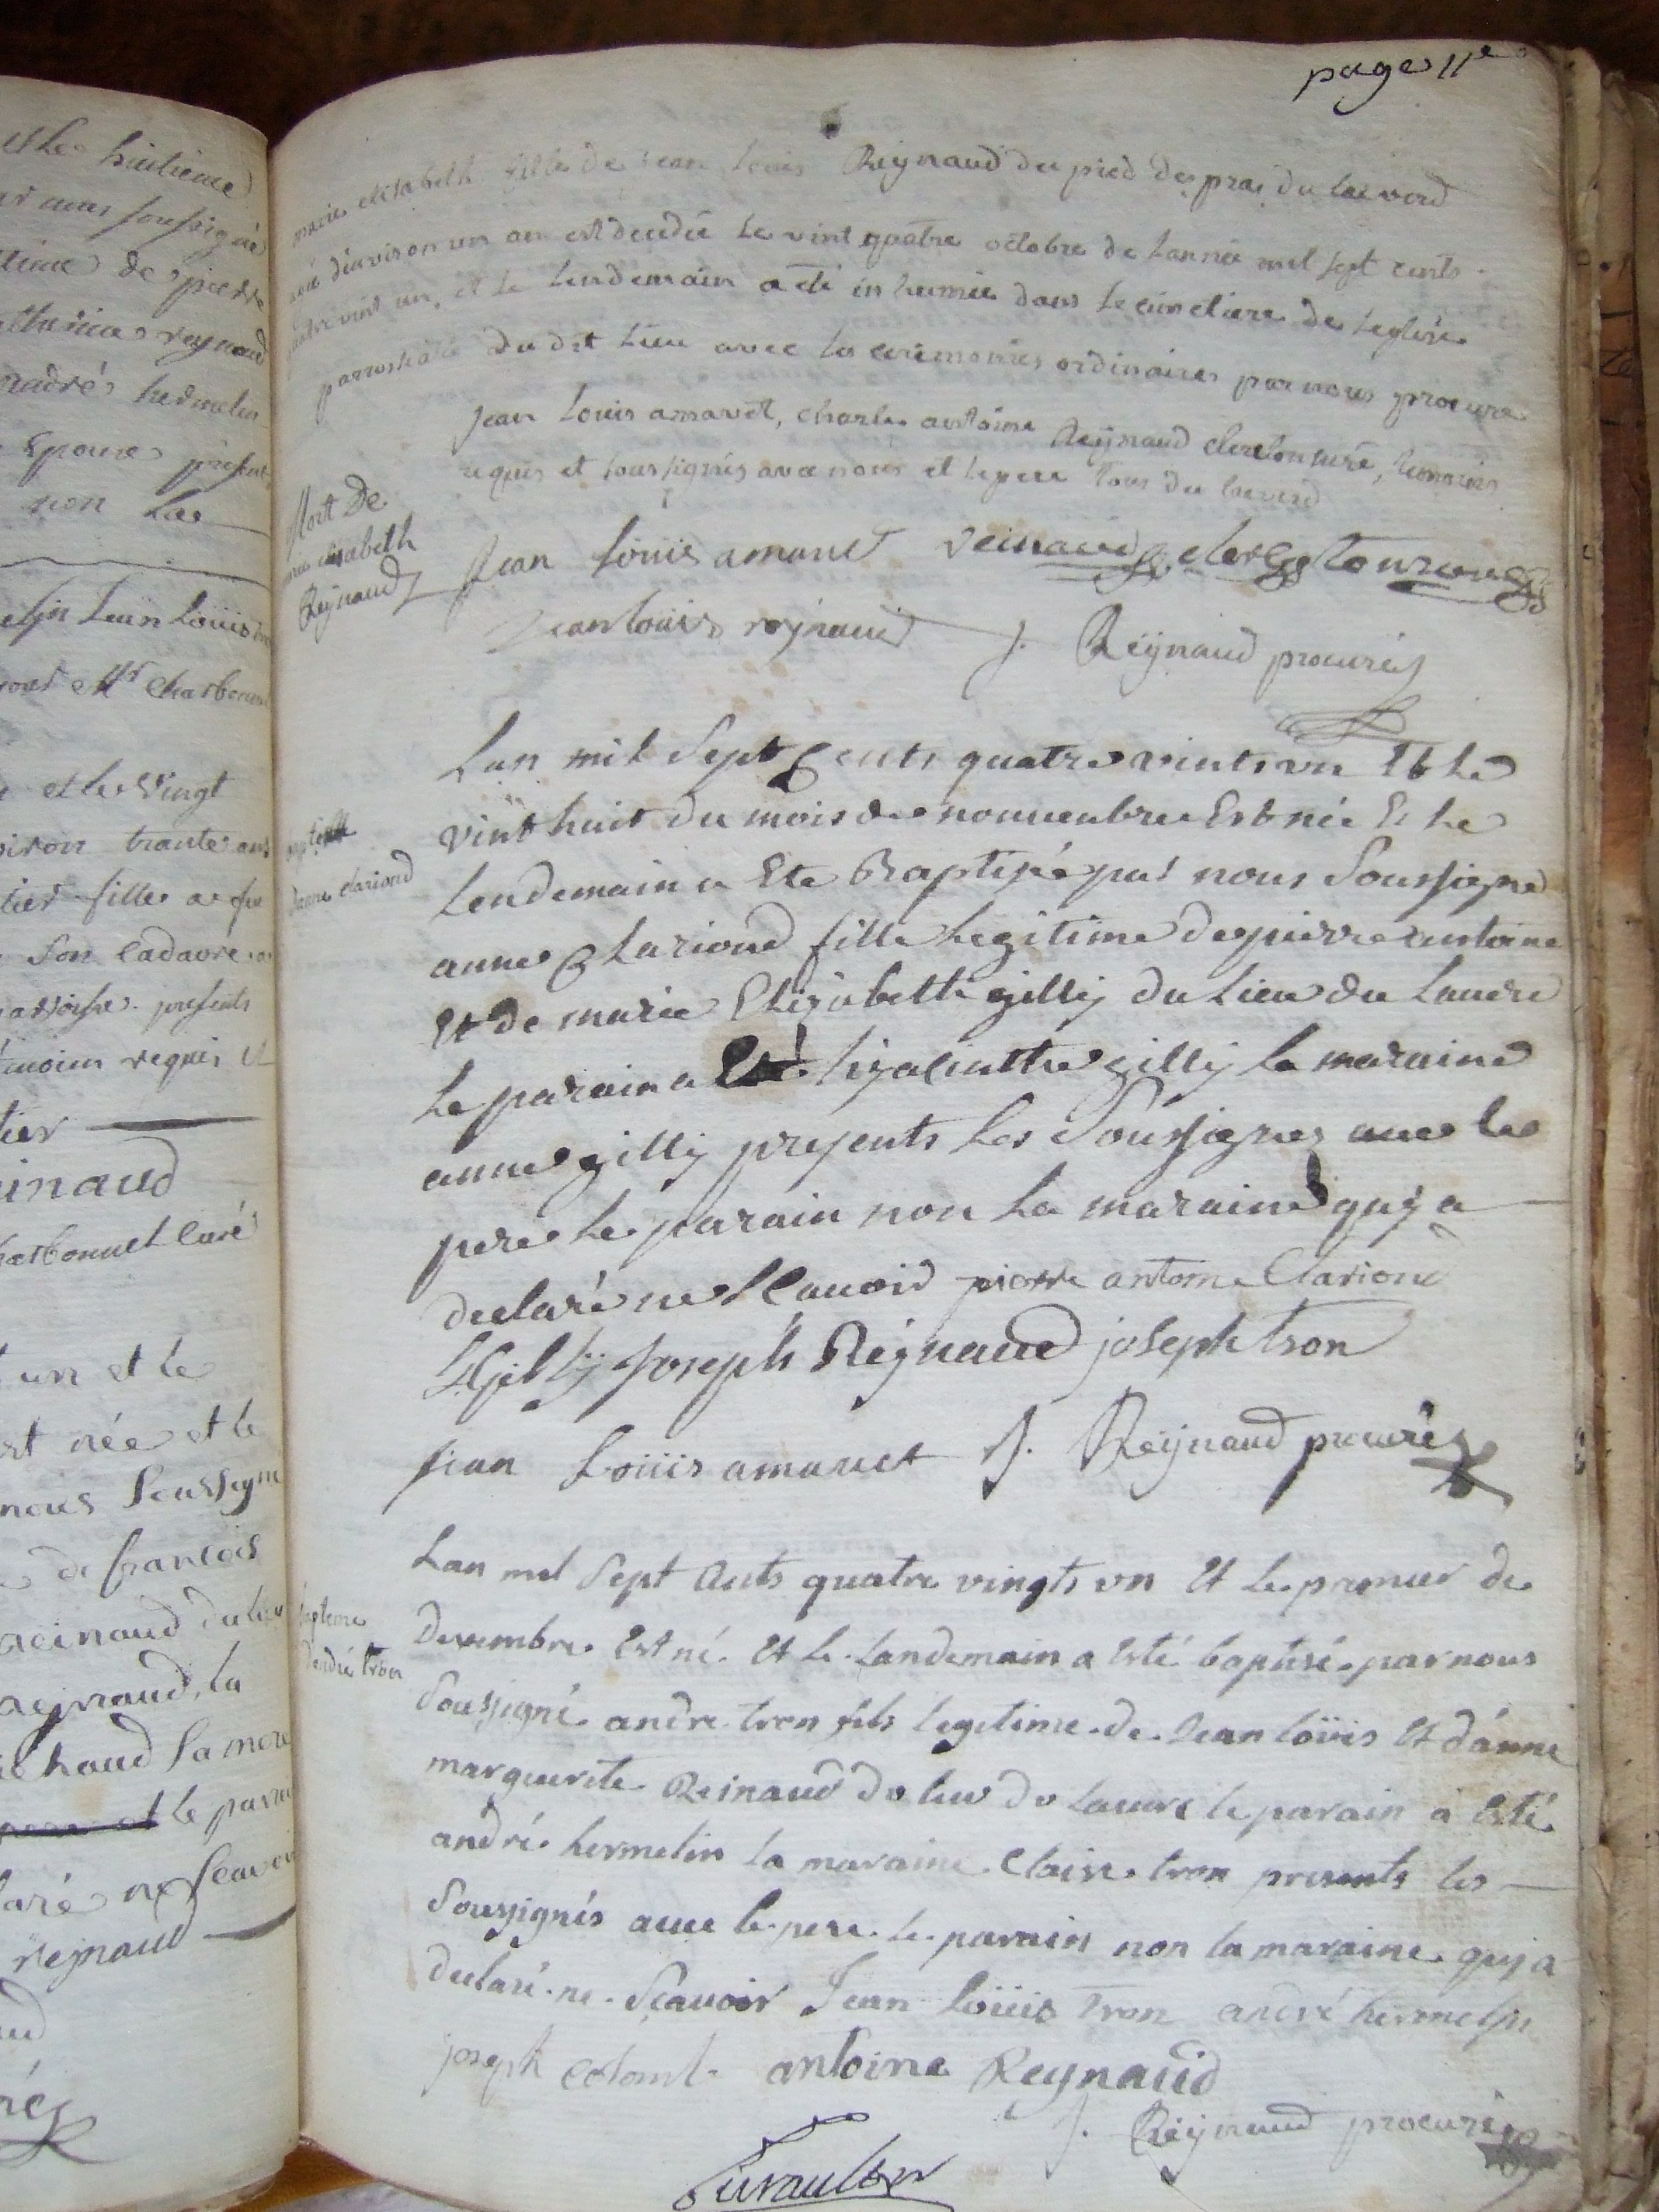 et le huitieme
par nous soussigné
de pierre
reynaud
hermelin
Epouse present
non la
Jean Louis
Mr Charbonnet
et le Vingt
environ trante ans
fille a feu
Son Cadavre
parroisse presents
temoins requis et
reinaud
charbonnet Curé
un et le
est née et le
nous Soussigné
de francois
reinaud du lieu
reynaud, la
Sa mere
le parain
declaré ne Scavoir
reynaud
page 11e
marie elisabeth fille de jean Louis Reynaud du pied des prai du lauverd
agée denviron un an est decedée Le vint quatre octobre de Lannée mil sept cents
quatre vint un, et le lendemain a eté in humée dans le cimetiere de leglise
parroshiale du dit Lieu avec les ceremonies ordinaires par nous procuré
jean Louis amavet, charles antoine Reynaud clerc tonsuré, temoins
requis et soussignés avec nous et le pere tous du lauverd
Mort De
marie elisabeth
Reynaud
Jean Louis amavet reinaud clerc tonsuré
jean louis reynaud J. Reynaud procuré
Lan mil Sept Cents quatre vints un Et Le
vint huit du mois de nouvembre Est née Et Le
Lendemain a Ete Baptisée par nous Soussigné
anne Clarioud fille Legitime de pierre antoine
Et de marie Elizabeth gilly du Lieu du Lauvere
Le parain a Eté hyacinthe gilly La maraine
anne gilly presents Les Soussignes avec le
pere Le parain non La maraine quy a
declaré ne Scavoir pierre antoine Clarioud
baptesme
danne clarioud
H Gilly Joseph Reynaud joseph tron
jean Louis amavet J. Reynaud procuré
Lan mil Sept Cents quatre vingts un Et Le premier de
Decembre Est né Et Le Landemain a Esté baptisé par nous
Soussigné andre tron fils legitime de Jean Louis Et d'anne
marguerite Reinaud du lieu du lauvere le parain a Esté
andré hermelin la maraine Claire tron presents les
Soussignés avec le pere le parain non la maraine quj a
declaré ne Scavoir Jean Louis tron andré hermelin
bapteme
dandré tron
joseph Colomb antoine Reynaud
J. Reynaud procuré